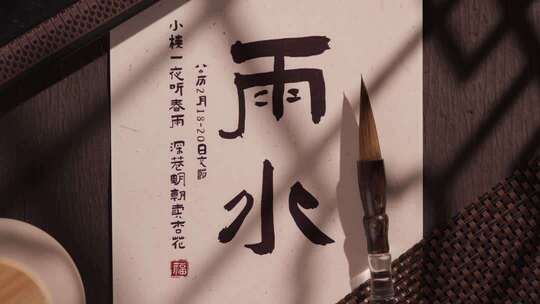 雨水
公历2月18-20日交节
小楼一夜听春雨 深巷明朝卖杏花
福